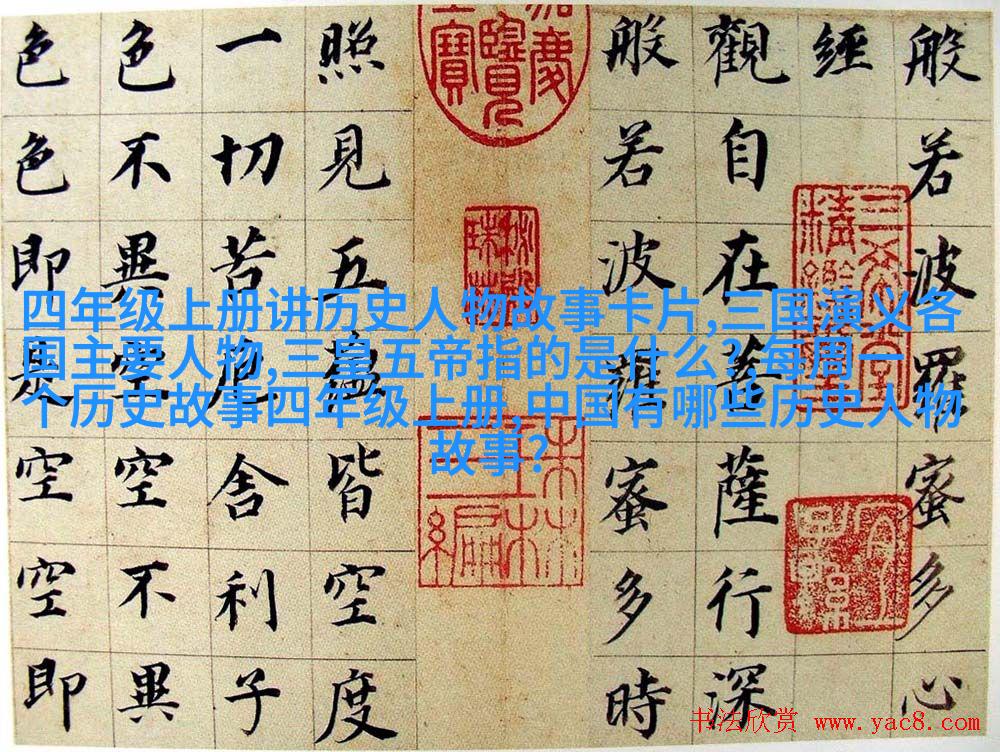 般若波羅蜜多心
經
觀自在菩薩行深
般若波羅蜜多時
照見五蘊皆空度
一切苦厄舍利子
色不異空空不異
色色即是空空即
四年级上册讲历史人物故事卡片,三国演义各
国主要人物,三皇五帝指的是什么? 每周一
个历史故事四年级上册,中国有哪些历史人物
故事?
书法欣赏 www.yac8.com